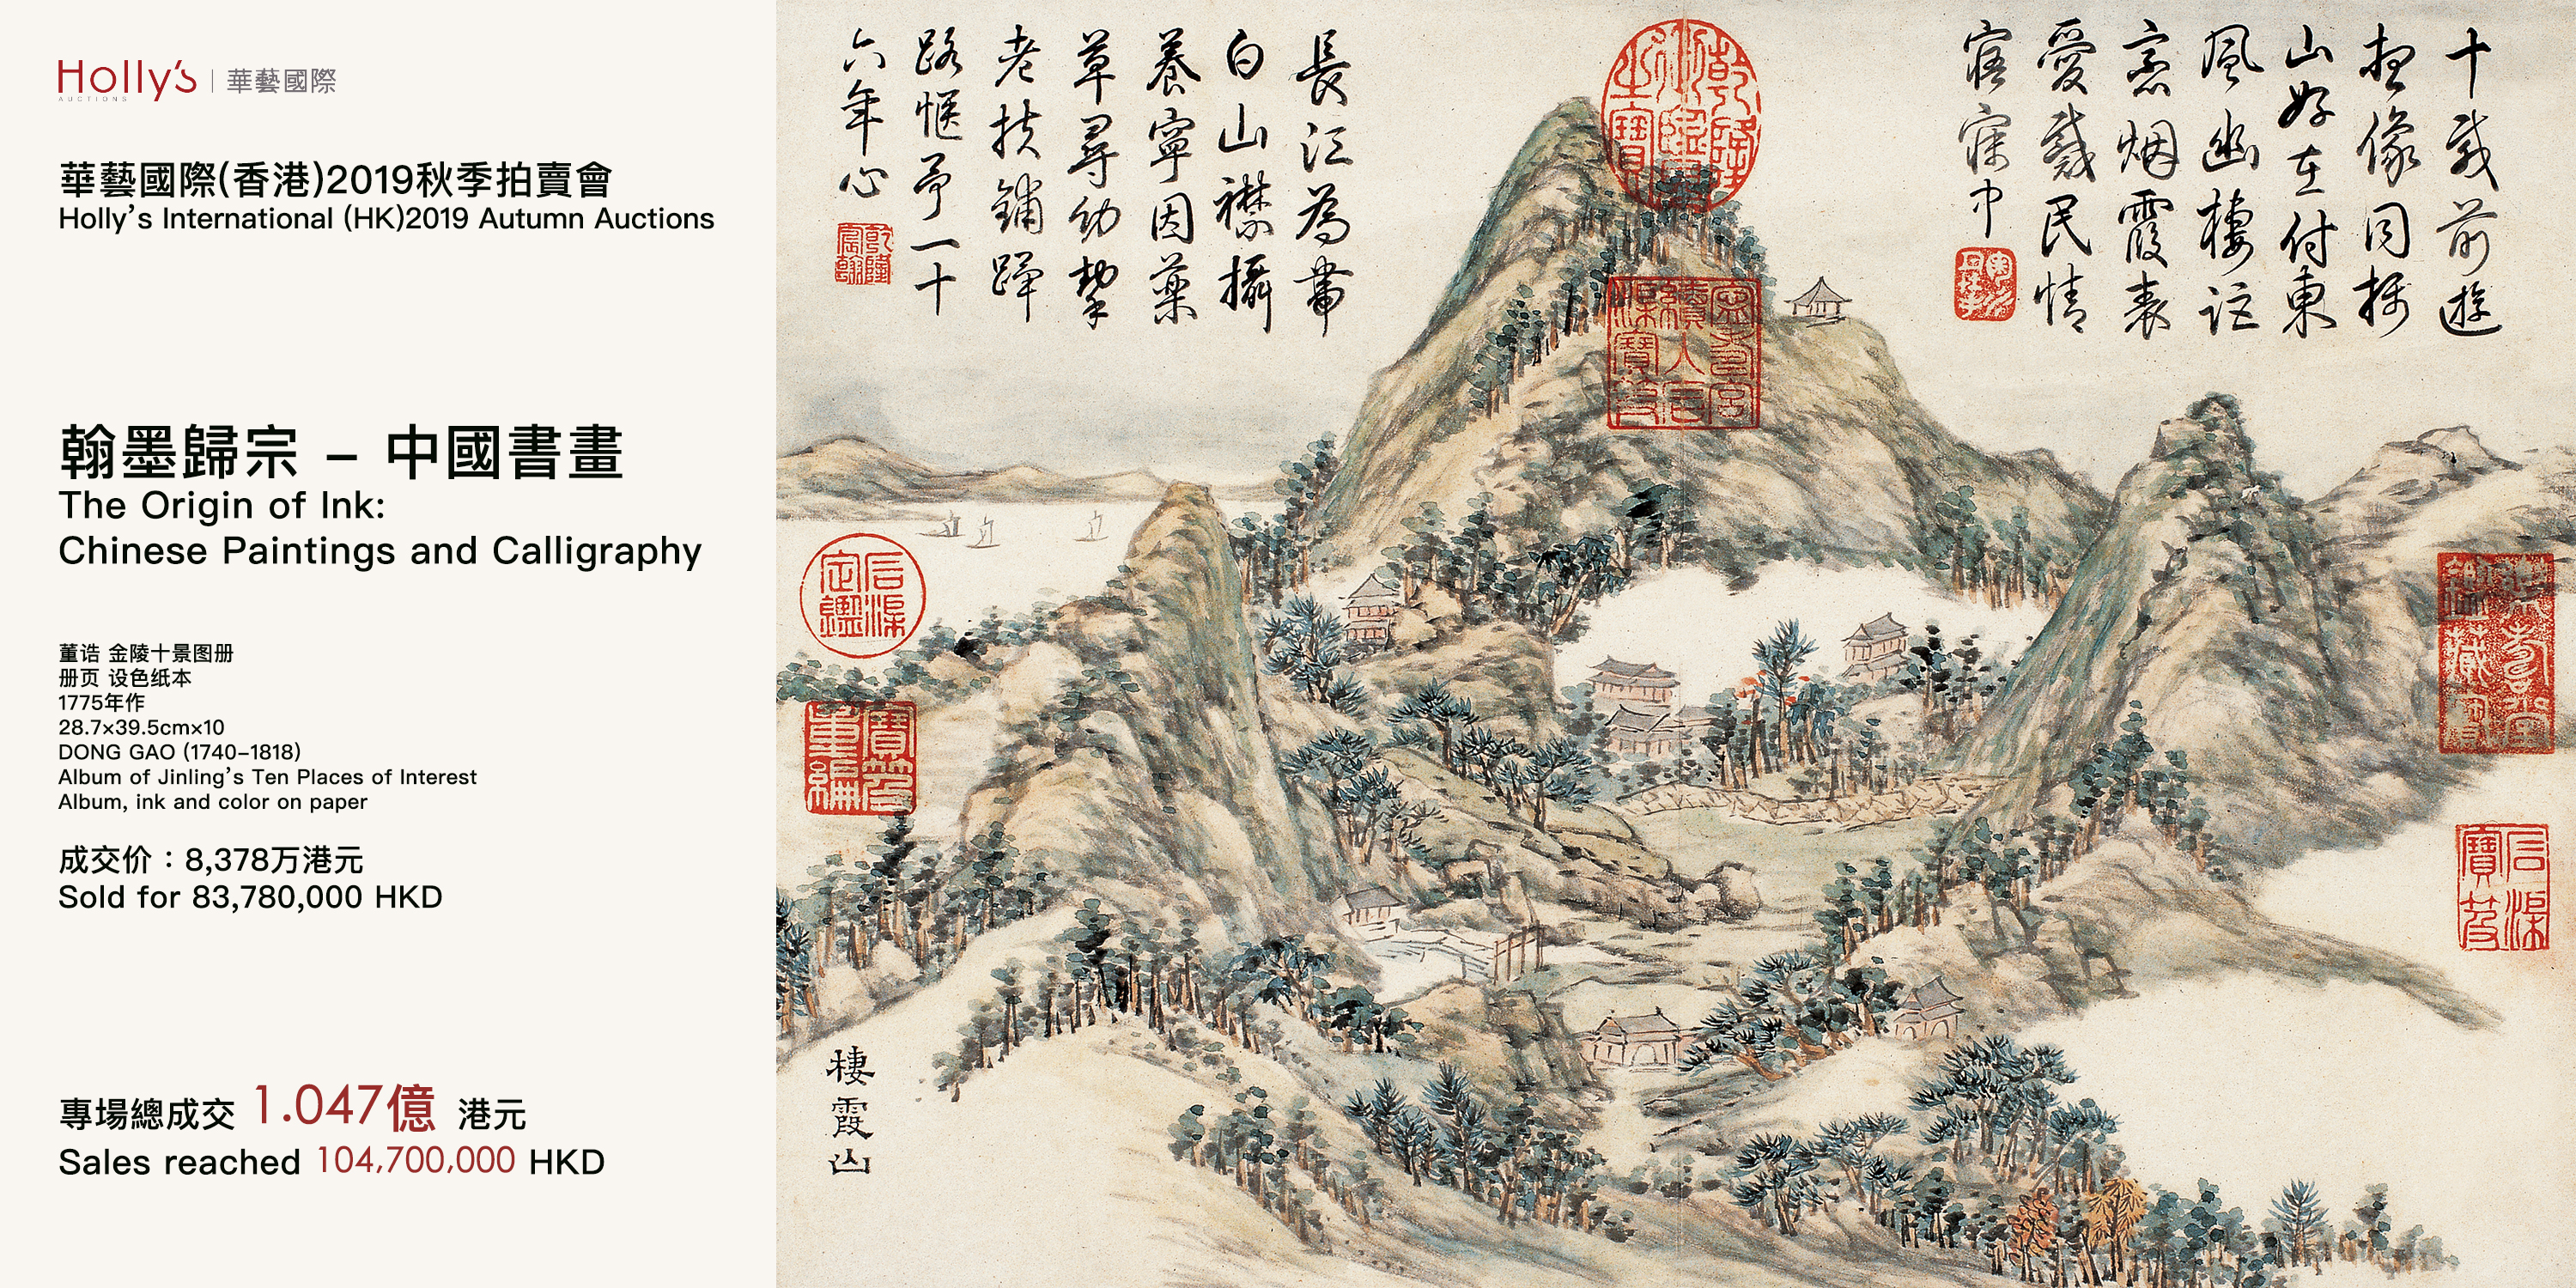 Holly's | 華藝國際
AUCTIONS
華藝國際(香港)2019秋季拍賣會
Holly's International (HK)2019 Autumn Auctions
翰墨歸宗 – 中國書畫
The Origin of Ink:
Chinese Paintings and Calligraphy
董诰 金陵十景图册
册页 设色纸本
1775年作
28.7×39.5cm×10
DONG GAO (1740–1818)
Album of Jinling's Ten Places of Interest
Album, ink and color on paper
成交价：8,378万港元
Sold for 83,780,000 HKD
專場總成交 1.047億 港元
Sales reached 104,700,000 HKD
十載前遊
想像同攝
山好在付東
風幽棲詎
忘烟霞表
愛戴民情
寤寐中
長江為帶
白山襟攝
養寧因藥
草尋幼挈
老扶鋪蹕
路愜予一十
六年心
乾隆宸翰
乾隆御覽之寶
寧壽宮續入石渠寶笈
石渠定鑑
寶笈重編
樂壽堂鑑藏寶
石渠寶笈
棲霞山